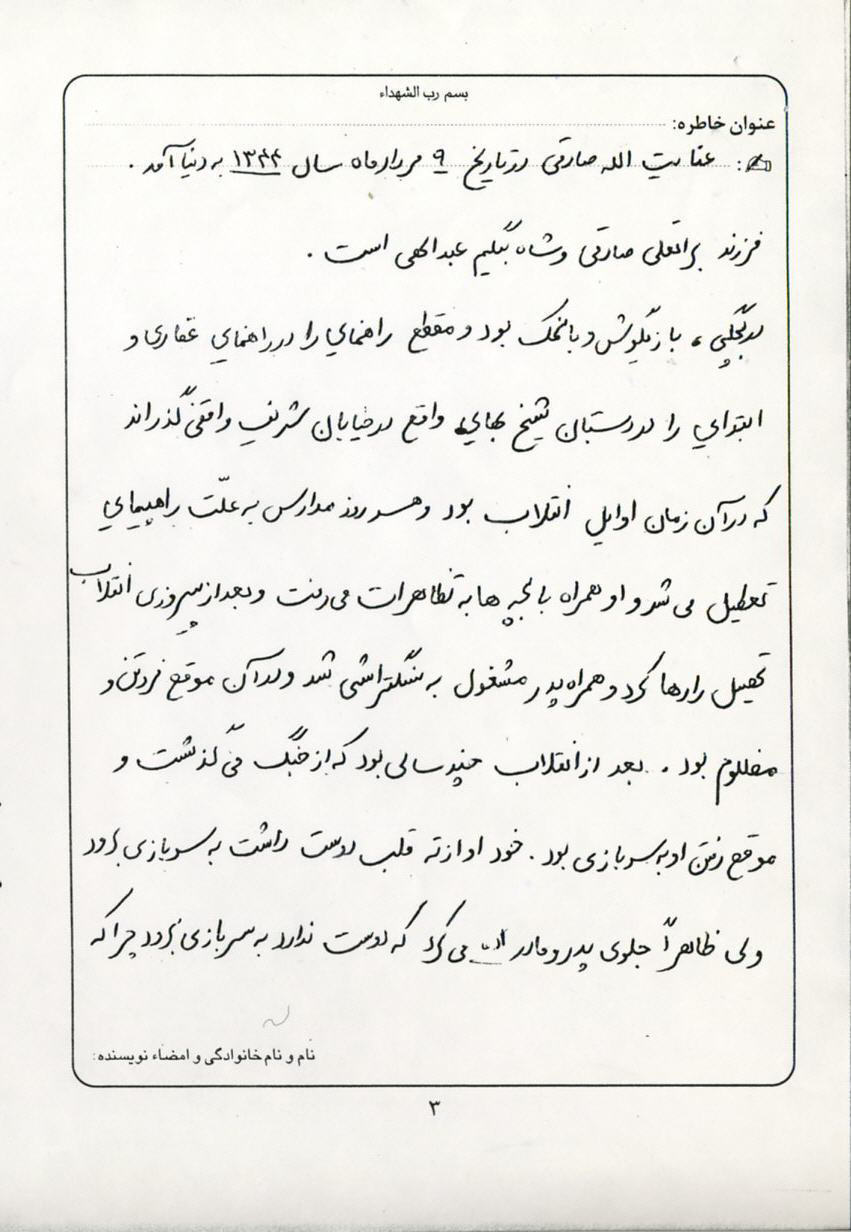 بسم رب الشهداء
عنوان خاطره:
عنایت الله صادقی در تاریخ ۹ مردادماه سال ۱۳۴۴ به دنیا آمد .
فرزند براتعلی صادقی و شاه بیگم عبدالهی است .
در بچگی ، بازیگوش و بانمک بود و مقطع راهنمایی را در راهنمایی غفاری و
ابتدایی را در دبستان شیخ بهایی واقع در خیابان شریف واقفی گذراند
که در آن زمان اوایل انقلاب بود و هر روز مدارس به علّت راهپیمایی
تعطیل می شد و او همراه با بچه ها به تظاهرات می رفت و بعد از پیروزی انقلاب
تحصیل را رها کرد و همراه پدر مشغول به سنگتراشی شد و در آن موقع فروتن و
مظلوم بود . بعد از انقلاب چند سالی بود که از جنگ می گذشت و
موقع رفتن او به سربازی بود . خود او از ته قلب دوست داشت به سربازی برود
ولی ظاهراً جلوی پدر و مادر می کرد که دوست ندارد به سربازی برود چرا که
نام و نام خانوادگی و امضاء نویسنده:
۳